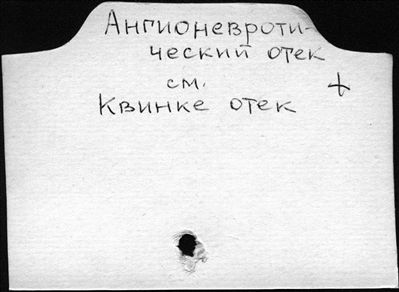 Ангионевроти-
ческий отек
см. +
Квинке отек